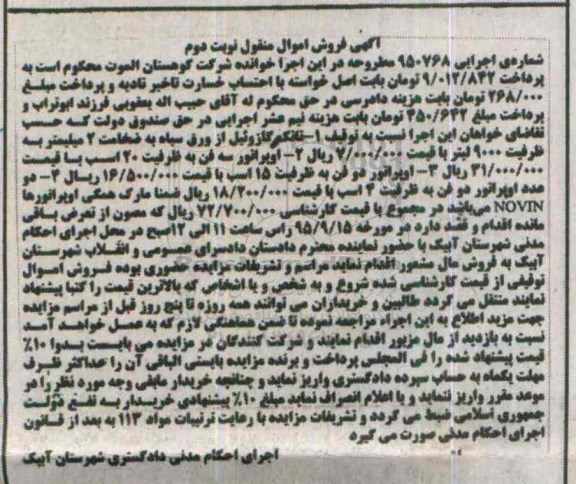 آگهی فروش اموال منقول نوبت دوم
شماره‌ی اجرایی ۹۵۰۷۶۸ مطروحه در این اجرا خوانده شرکت کوهستان الموت محکوم است به
پرداخت ۹/۰۱۲/۸۴۲ تومان بابت اصل خواسته با احتساب خسارت تاخیر تادیه و پرداخت مبلغ
۲۶۸/۰۰۰ تومان بابت هزینه دادرسی در حق محکوم له آقای حبیب اله یعقوبی فرزند ابوتراب و
پرداخت مبلغ ۴۵۰/۶۴۲ تومان بابت هزینه نیم عشر اجرایی در حق صندوق دولت که حسب
تقاضای خواهان این اجرا نسبت به توقیف ۱-تانکر گازوئیل از ورق سیاه به ضخامت ۲ میلیمتر به
ظرفیت ۹۰۰۰ لیتر با قیمت ریال ۲- اوپراتور سه فن به ظرفیت ۲۰ اسب با قیمت
۳۱/۰۰۰/۰۰۰ ریال ۳- اوپراتور دو فن به ظرفیت ۱۵ اسب با قیمت ۱۶/۵۰۰/۰۰۰ ریال ۴- دو
عدد اوپراتور دو فن به ظرفیت ۴ اسب با قیمت ۱۸/۲۰۰/۰۰۰ ریال ضمنا مارک همگی اوپراتورها
NOVIN میباشد در مجموع با قیمت کارشناسی ۷۲/۷۰۰/۰۰۰ ریال که مصون از تعرض باقی
مانده اقدام و قصد دارد در مورخه ۹۵/۹/۱۵ راس ساعت ۱۱ الی ۱۲صبح در محل اجرای احکام
مدنی شهرستان آبیک با حضور نماینده محترم دادستان دادسرای عمومی و انقلاب شهرستان
آبیک به فروش مال مذکور اقدام نماید مراسم و تشریفات مزایده حضوری بوده فروش اموال
توقیفی از قیمت کارشناسی شده شروع و به شخص و یا اشخاص که بالاترین قیمت را کتبا پیشنهاد
نمایند منتقل می گردد طالبین و خریداران می توانند همه روزه تا پنج روز قبل از مراسم مزایده
جهت مزید اطلاع به این اجراء مراجعه نموده تا ضمن هماهنگی لازم که به عمل خواهد آمد
نسبت به بازدید از مال مزبور اقدام نمایند و شرکت کنندگان در مزایده می بایست بدوا ۱۰٪
قیمت پیشنهاد شده را فی المجلس پرداخت و برنده مزایده بایستی الباقی آن را حداکثر ظرف
مهلت یکماه به حساب سپرده دادگستری واریز نماید و چنانچه خریدار مابقی وجه مورد نظر را در
موعد مقرر واریز ننماید و یا اعلام انصراف نماید مبلغ ۱۰٪ پیشنهادی خریدار به نفع دولت
جمهوری اسلامی ضبط می گردد و تشریفات مزایده با رعایت ترتیبات مواد ۱۱۳ به بعد از قانون
اجرای احکام مدنی صورت می گیرد
اجرای احکام مدنی دادگستری شهرستان آبیک